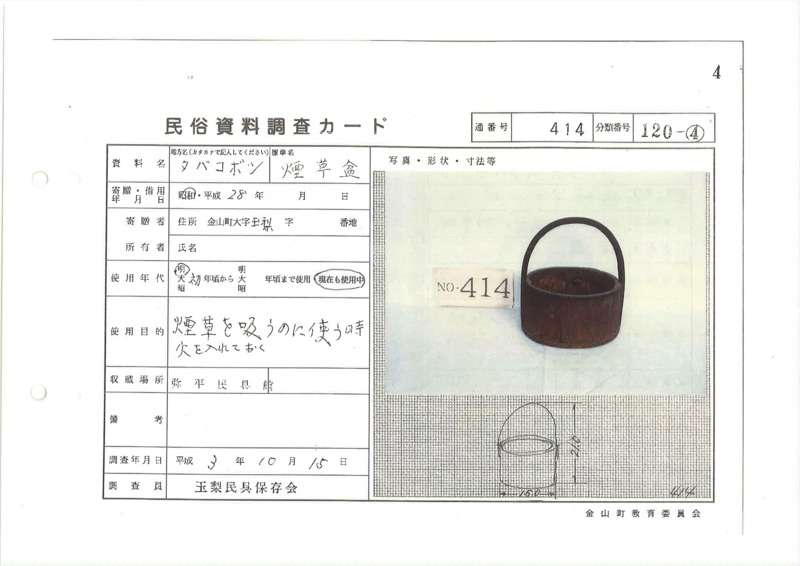 4
民俗資料調査カード
通番号 414 分類番号 120-④
資料名 地方名(カタカナで記入してください) タバコボン 標準名 煙草盆
寄贈・借用年月日 昭和・平成 28年 月 日
寄贈者 住所 金山町大字玉梨 字 番地
所有者 氏名
使用年代 明大昭 初年頃から 明大昭 年頃まで使用 現在も使用中
使用目的 煙草を吸うのに使う時
火を入れておく
収蔵場所 弥平民具館
備考
調査年月日 平成 3年 10月 15日
調査員 玉梨民具保存会
写真・形状・寸法等
NO-414
21.0
15.0
414
金山町教育委員会